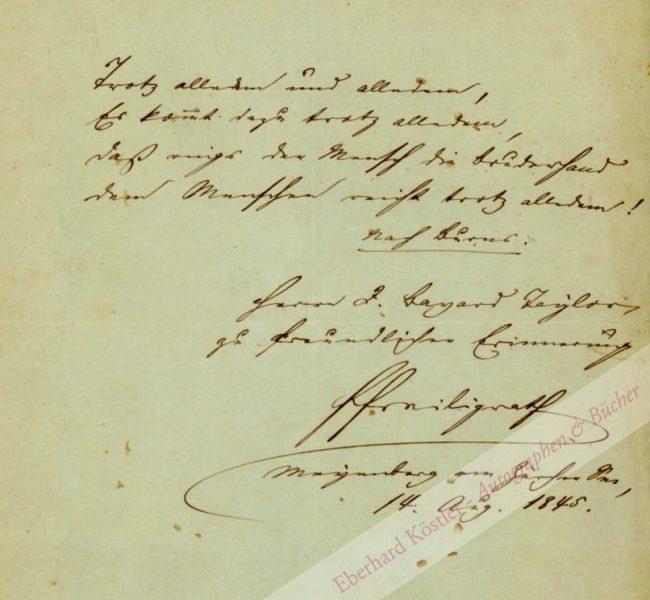 Trotz alledem und alledem,
Es kom̅t dazu trotz alledem,
Daß rings der Mensch die Bruderhand
dem Menschen reicht trotz alledem!
Nach Burns.
Herrn J. Bayard Taylor
zu freundlicher Erinnerung
FFreiligrath
Meyenberg am Zürcher See,
14. Aug. 1845.
Eberhard Köstler Autographen & Bücher